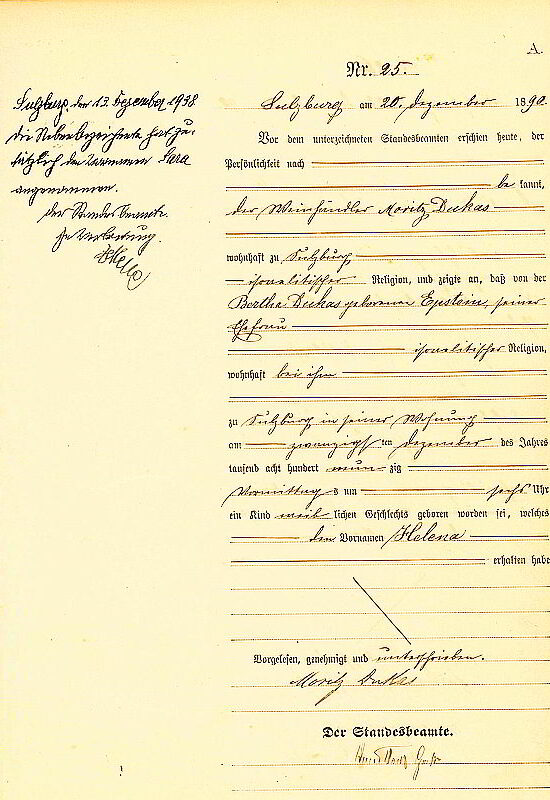 A.
Nr. 25.
Sulzburg am 20. Dezember 1890.
Vor dem unterzeichneten Standesbeamten erschien heute, der
Persönlichkeit nach
be kannt,
der Weinhändler Moritz Dukas
wohnhaft zu Sulzburg
israelitischer Religion, und zeigte an, daß von der
Bertha Dukas geborenen Epstein, seiner
Ehefrau
israelitischer Religion,
wohnhaft bei ihm
zu Sulzburg in seiner Wohnung
am zwanzigsten Dezember des Jahres
tausend acht hundert neun zig
Vormittags um sechs Uhr
ein Kind weiblichen Geschlechts geboren worden sei, welches
den Vornamen Helena
erhalten habe
Vorgelesen, genehmigt und unterschrieben.
Moritz Dukas
Der Standesbeamte.
Sulzburg, den 13. Dezember 1938
Die Nebenbezeichnete hat zu-
sätzlich den Vornamen Sara
angenommen.
Der Standesbeamte
In Vertretung.